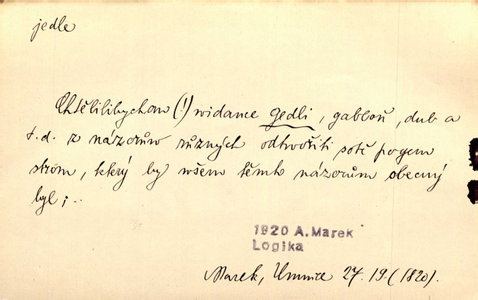 jedle
Chtělilibychom (!) widauce gedli, gabloň, dub a
t.d. z názorůw různých odtwořiti sotě pogem
strom, který by wšem těmto názorům obecný
byl; ..
1920 A. Marek
Logika
Marek, Umnice 27.19. (1820).